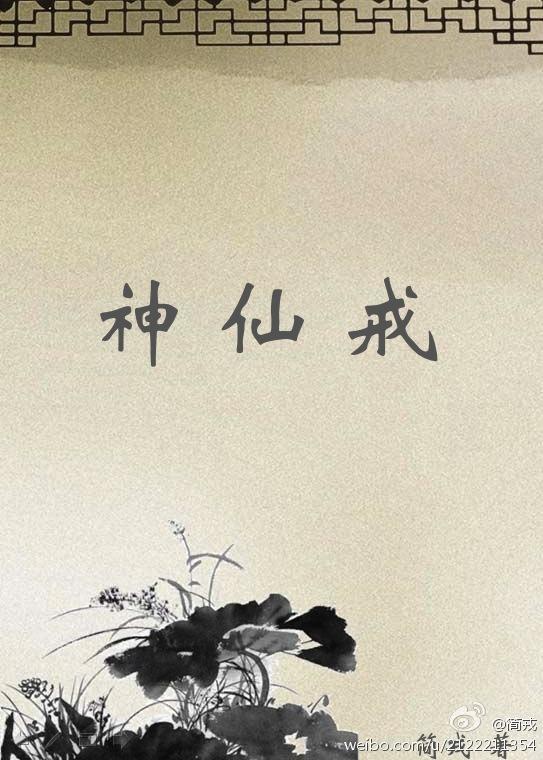 神仙戒
@简戎
简戎 著
weibo.com/u/2122211354